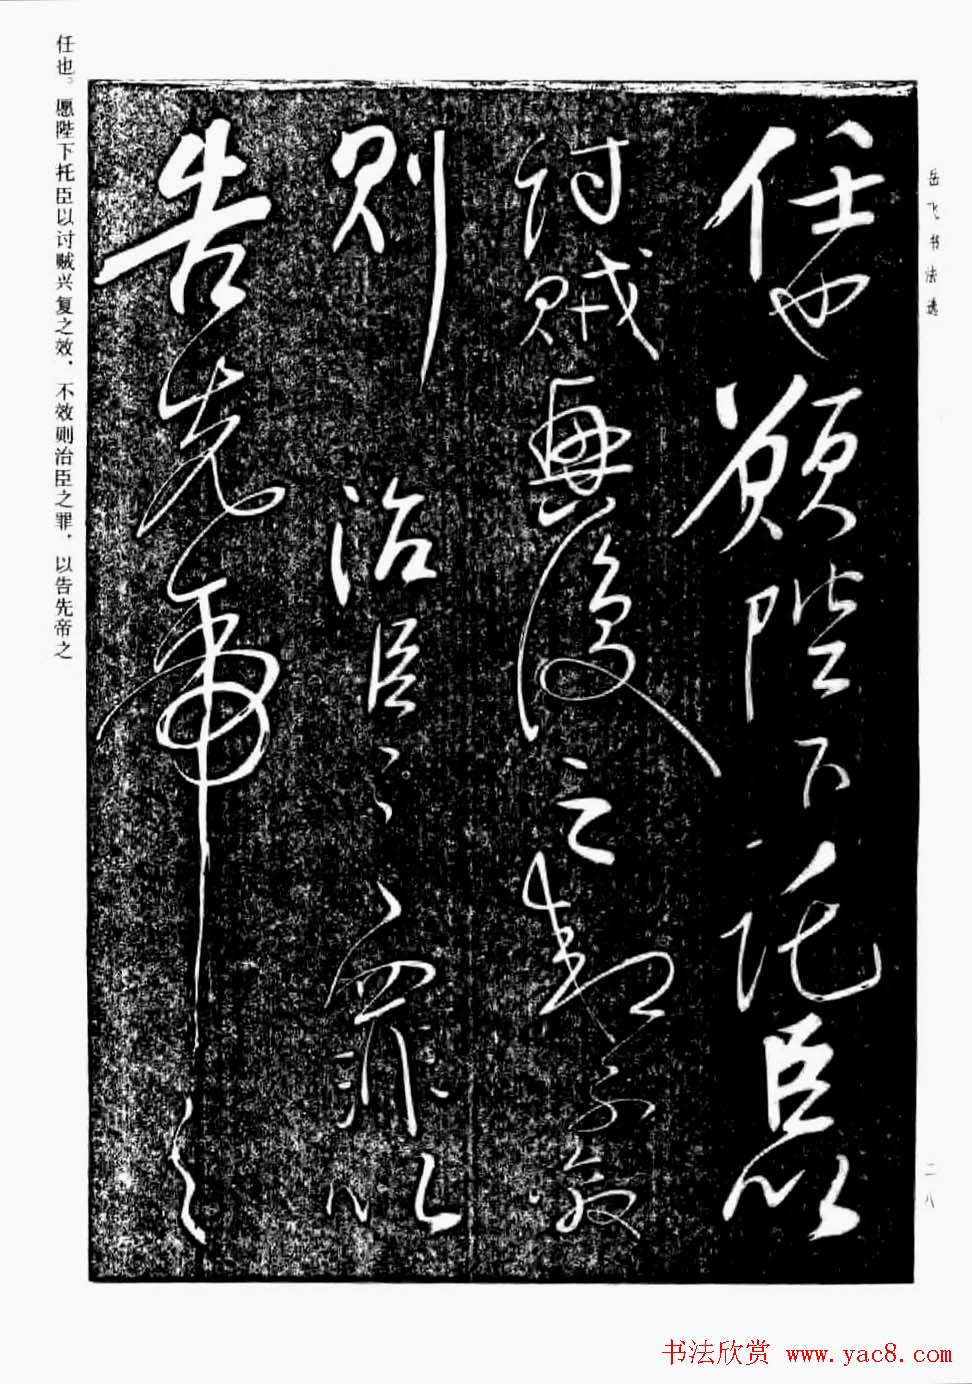 岳飞书法选
任也願陛下託臣以
討賊興復之效不效
則治臣之罪以
告先帝之
任也。愿陛下托臣以讨贼兴复之效，不效则治臣之罪，以告先帝之
二八
书法欣赏 www.yac8.com